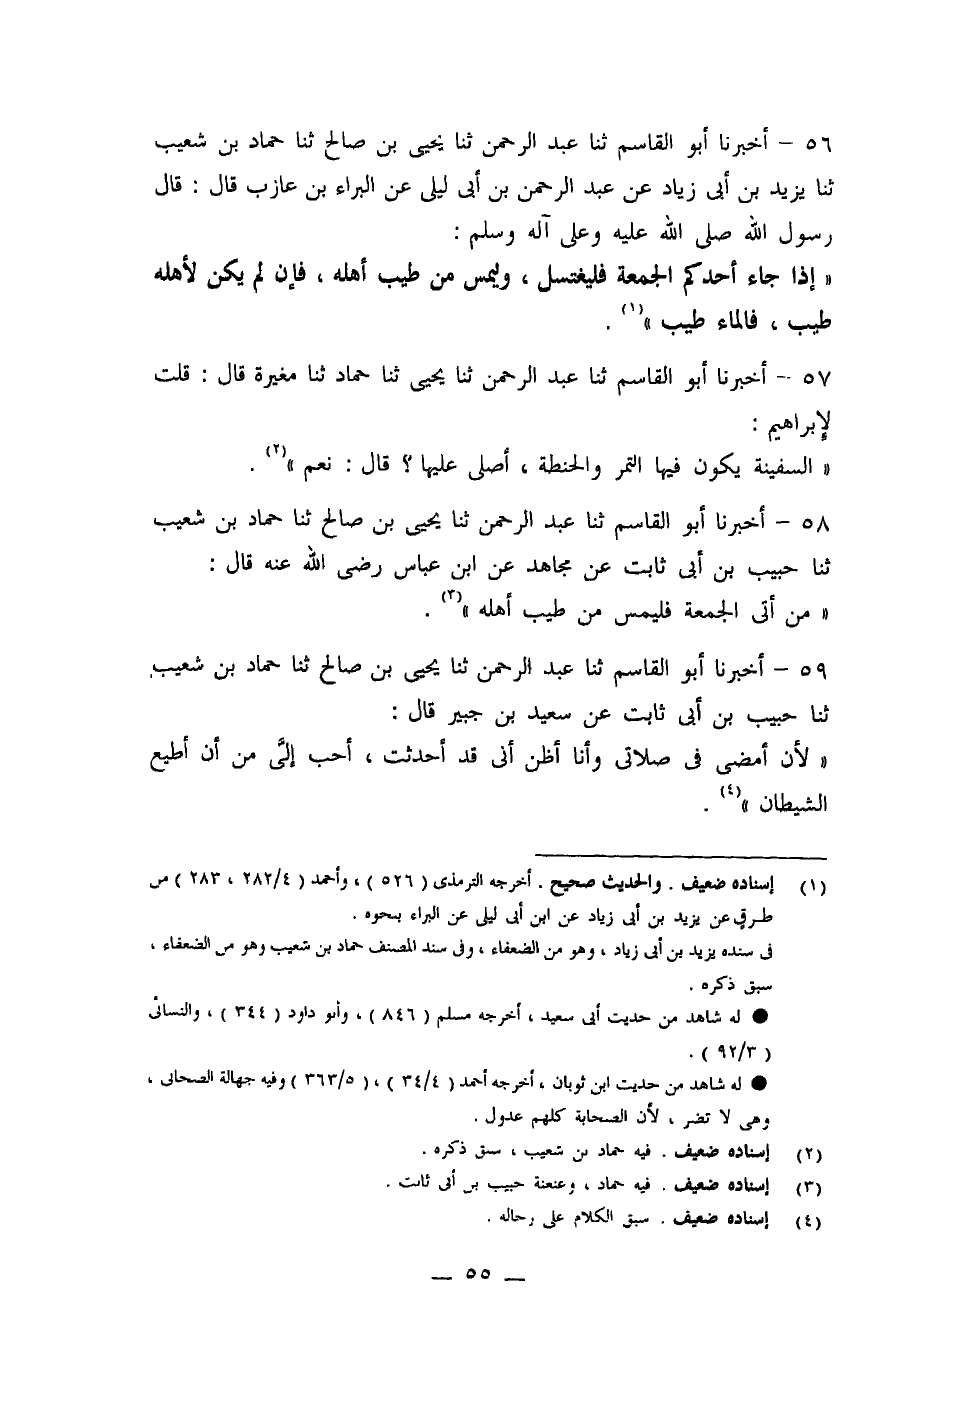 ٥٦ – أخبرنا أبو القاسم ثنا عبد الرحمن ثنا يحيى بن صالح ثنا حماد بن شعيب
ثنا يزيد بن أبى زياد عن عبد الرحمن بن أبى ليلى عن البراء بن عازب قال : قال
رسول الله صلى الله عليه وعلى آله وسلم :
« إذا جاء أحدكم الجمعة فليغتسل ، وليمس من طيب أهله ، فإن لم يكن لأهله
طيب ، فالماء طيب »(١) .
٥٧ – أخبرنا أبو القاسم ثنا عبد الرحمن ثنا يحيى ثنا حماد ثنا مغيرة قال : قلت
لإبراهيم :
« السفينة يكون فيها التمر والحنطة ، أصلى عليها ؟ قال : نعم »(٢) .
٥٨ – أخبرنا أبو القاسم ثنا عبد الرحمن ثنا يحيى بن صالح ثنا حماد بن شعيب
ثنا حبيب بن أبى ثابت عن مجاهد عن ابن عباس رضى الله عنه قال :
« من أتى الجمعة فليمس من طيب أهله »(٣) .
٥٩ – أخبرنا أبو القاسم ثنا عبد الرحمن ثنا يحيى بن صالح ثنا حماد بن شعيب
ثنا حبيب بن أبى ثابت عن سعيد بن جبير قال :
« لأن أمضى فى صلاتى وأنا أظن أنى قد أحدثت ، أحب إلىَّ من أن أطيع
الشيطان »(٤) .
(١) إسناده ضعيف . والحديث صحيح . أخرجه الترمذى ( ٥٢٦ ) ، وأحمد ( ٢٨٢/٤ ، ٢٨٣ ) من
طرق عن يزيد بن أبى زياد عن ابن أبى ليلى عن البراء بنحوه .
فى سنده يزيد بن أبى زياد ، وهو من الضعفاء ، وفى سند المصنف حماد بن شعيب وهو من الضعفاء ،
سبق ذكره .
● له شاهد من حديث أبى سعيد ، أخرجه مسلم ( ٨٤٦ ) ، وأبو داود ( ٣٤٤ ) ، والنسائى
( ٩٢/٣ ) .
● له شاهد من حديث ابن ثوبان ، أخرجه أحمد ( ٣٤/٤ ) ، ( ٣٦٣/٥ ) وفيه جهالة الصحابى ،
وهى لا تضر ، لأن الصحابة كلهم عدول .
(٢) إسناده ضعيف . فيه حماد بن شعيب ، سبق ذكره .
(٣) إسناده ضعيف . فيه حماد ، وعنعنة حبيب بن أبى ثابت .
(٤) إسناده ضعيف . سبق الكلام على رجاله .
— ٥٥ —